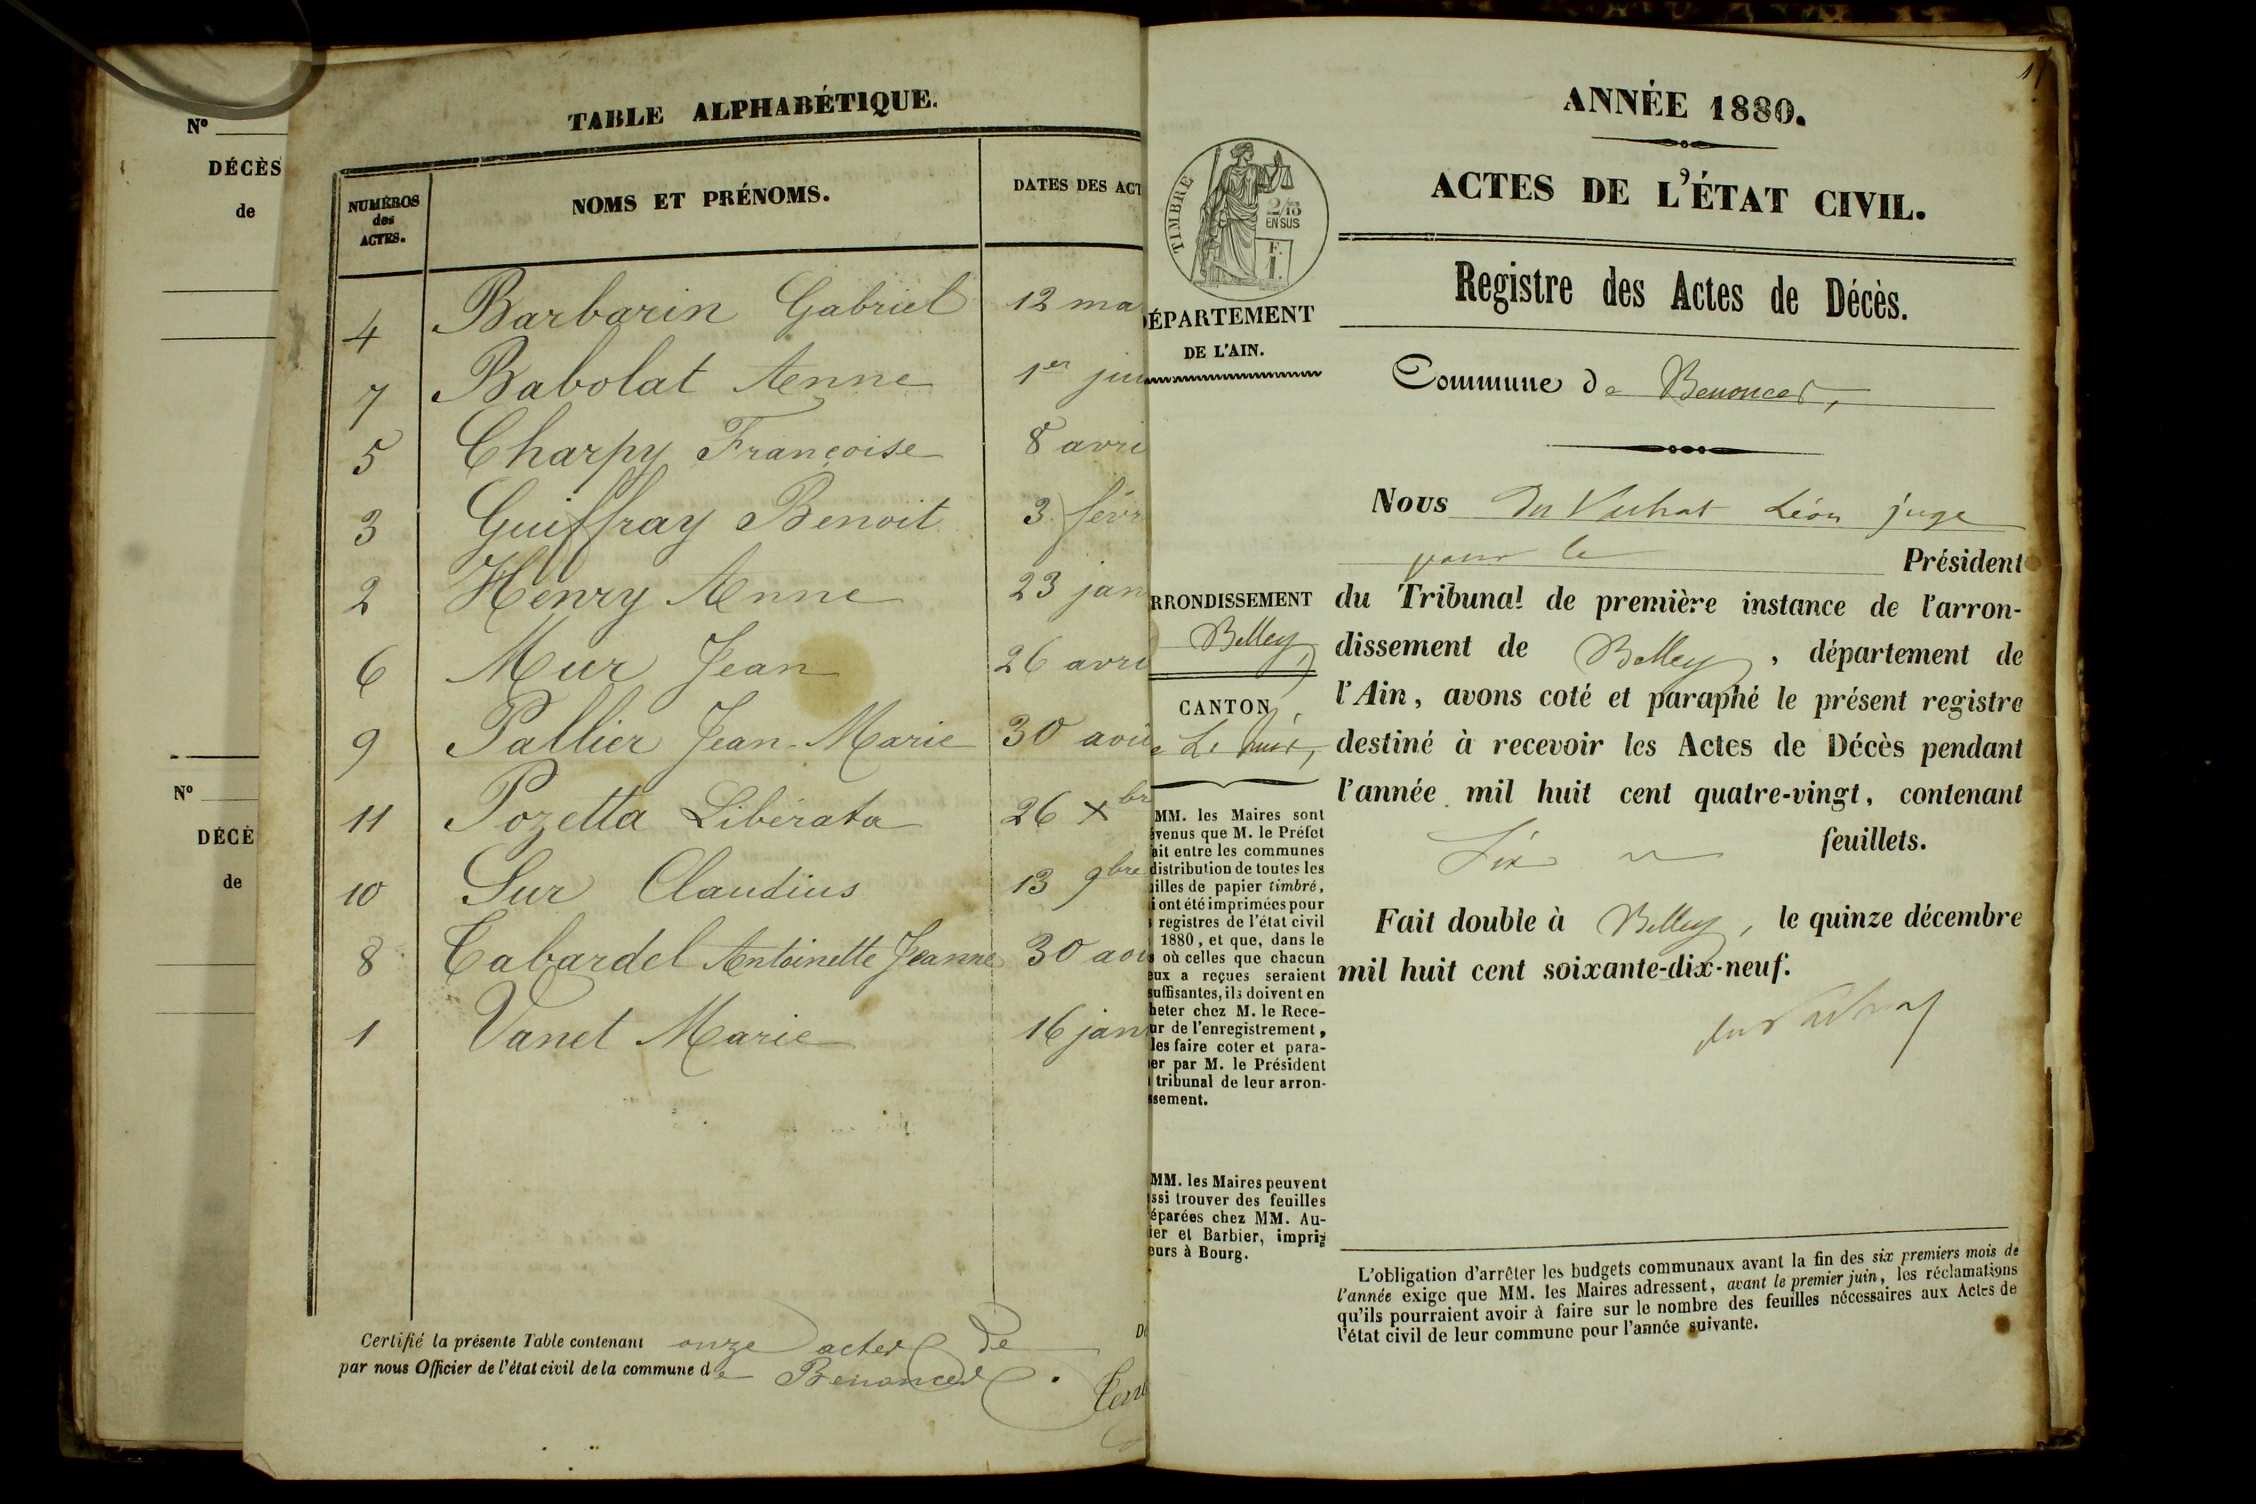 Nº
DÉCÈS
de
Nº
DÉCÈ
de
TABLE ALPHABÉTIQUE.
NUMÉROS des ACTES.
NOMS ET PRÉNOMS.
DATES DES ACT
4 Barbarin Gabriel 12 ma
7 Babolat Anne 1er jui
5 Charpy Françoise 8 avri
3 Guiffray Benoit 3 févr
2 Henry Anne 23 jan
6 Mur Jean 26 avri
9 Pallier Jean-Marie 30 aoû
11 Pozetta Libérata 26 Xbr
10 Sur Claudius 13 9bre
8 Tabardel Antoinette Jeanne 30 aoû
1 Vanet Marie 16 jan
Certifié la présente Table contenant onze actes de
par nous Officier de l'état civil de la commune de Benonces.
TIMBRE
2/10
EN SUS
F.
1.
ÉPARTEMENT
DE L'AIN.
RRONDISSEMENT
Belley,
CANTON
MM. les Maires sont
évenus que M. le Préfet
ait entre les communes
distribution de toutes les
illes de papier timbré,
i ont été imprimées pour
s registres de l'état civil
1880, et que, dans le
s où celles que chacun
eux a reçues seraient
suffisantes, ils doivent en
heter chez M. le Rece-
ur de l'enregistrement,
les faire coter et para-
er par M. le Président
tribunal de leur arron-
ssement.
MM. les Maires peuvent
ssi trouver des feuilles
éparées chez MM. Au-
ier et Barbier, impri-
eurs à Bourg.
1
ANNÉE 1880.
ACTES DE L'ÉTAT CIVIL.
Registre des Actes de Décès.
Commune de Benonces,
Nous Du Vachat Léon juge
pour le Président
du Tribunal de première instance de l'arron-
dissement de Belley, département de
l'Ain, avons coté et paraphé le présent registre
destiné à recevoir les Actes de Décès pendant
l'année mil huit cent quatre-vingt, contenant
Six feuillets.
Fait double à Belley, le quinze décembre
mil huit cent soixante-dix-neuf.
L'obligation d'arrêter les budgets communaux avant la fin des six premiers mois de
l'année exige que MM. les Maires adressent, avant le premier juin, les réclamations
qu'ils pourraient avoir à faire sur le nombre des feuilles nécessaires aux Actes de
l'état civil de leur commune pour l'année suivante.